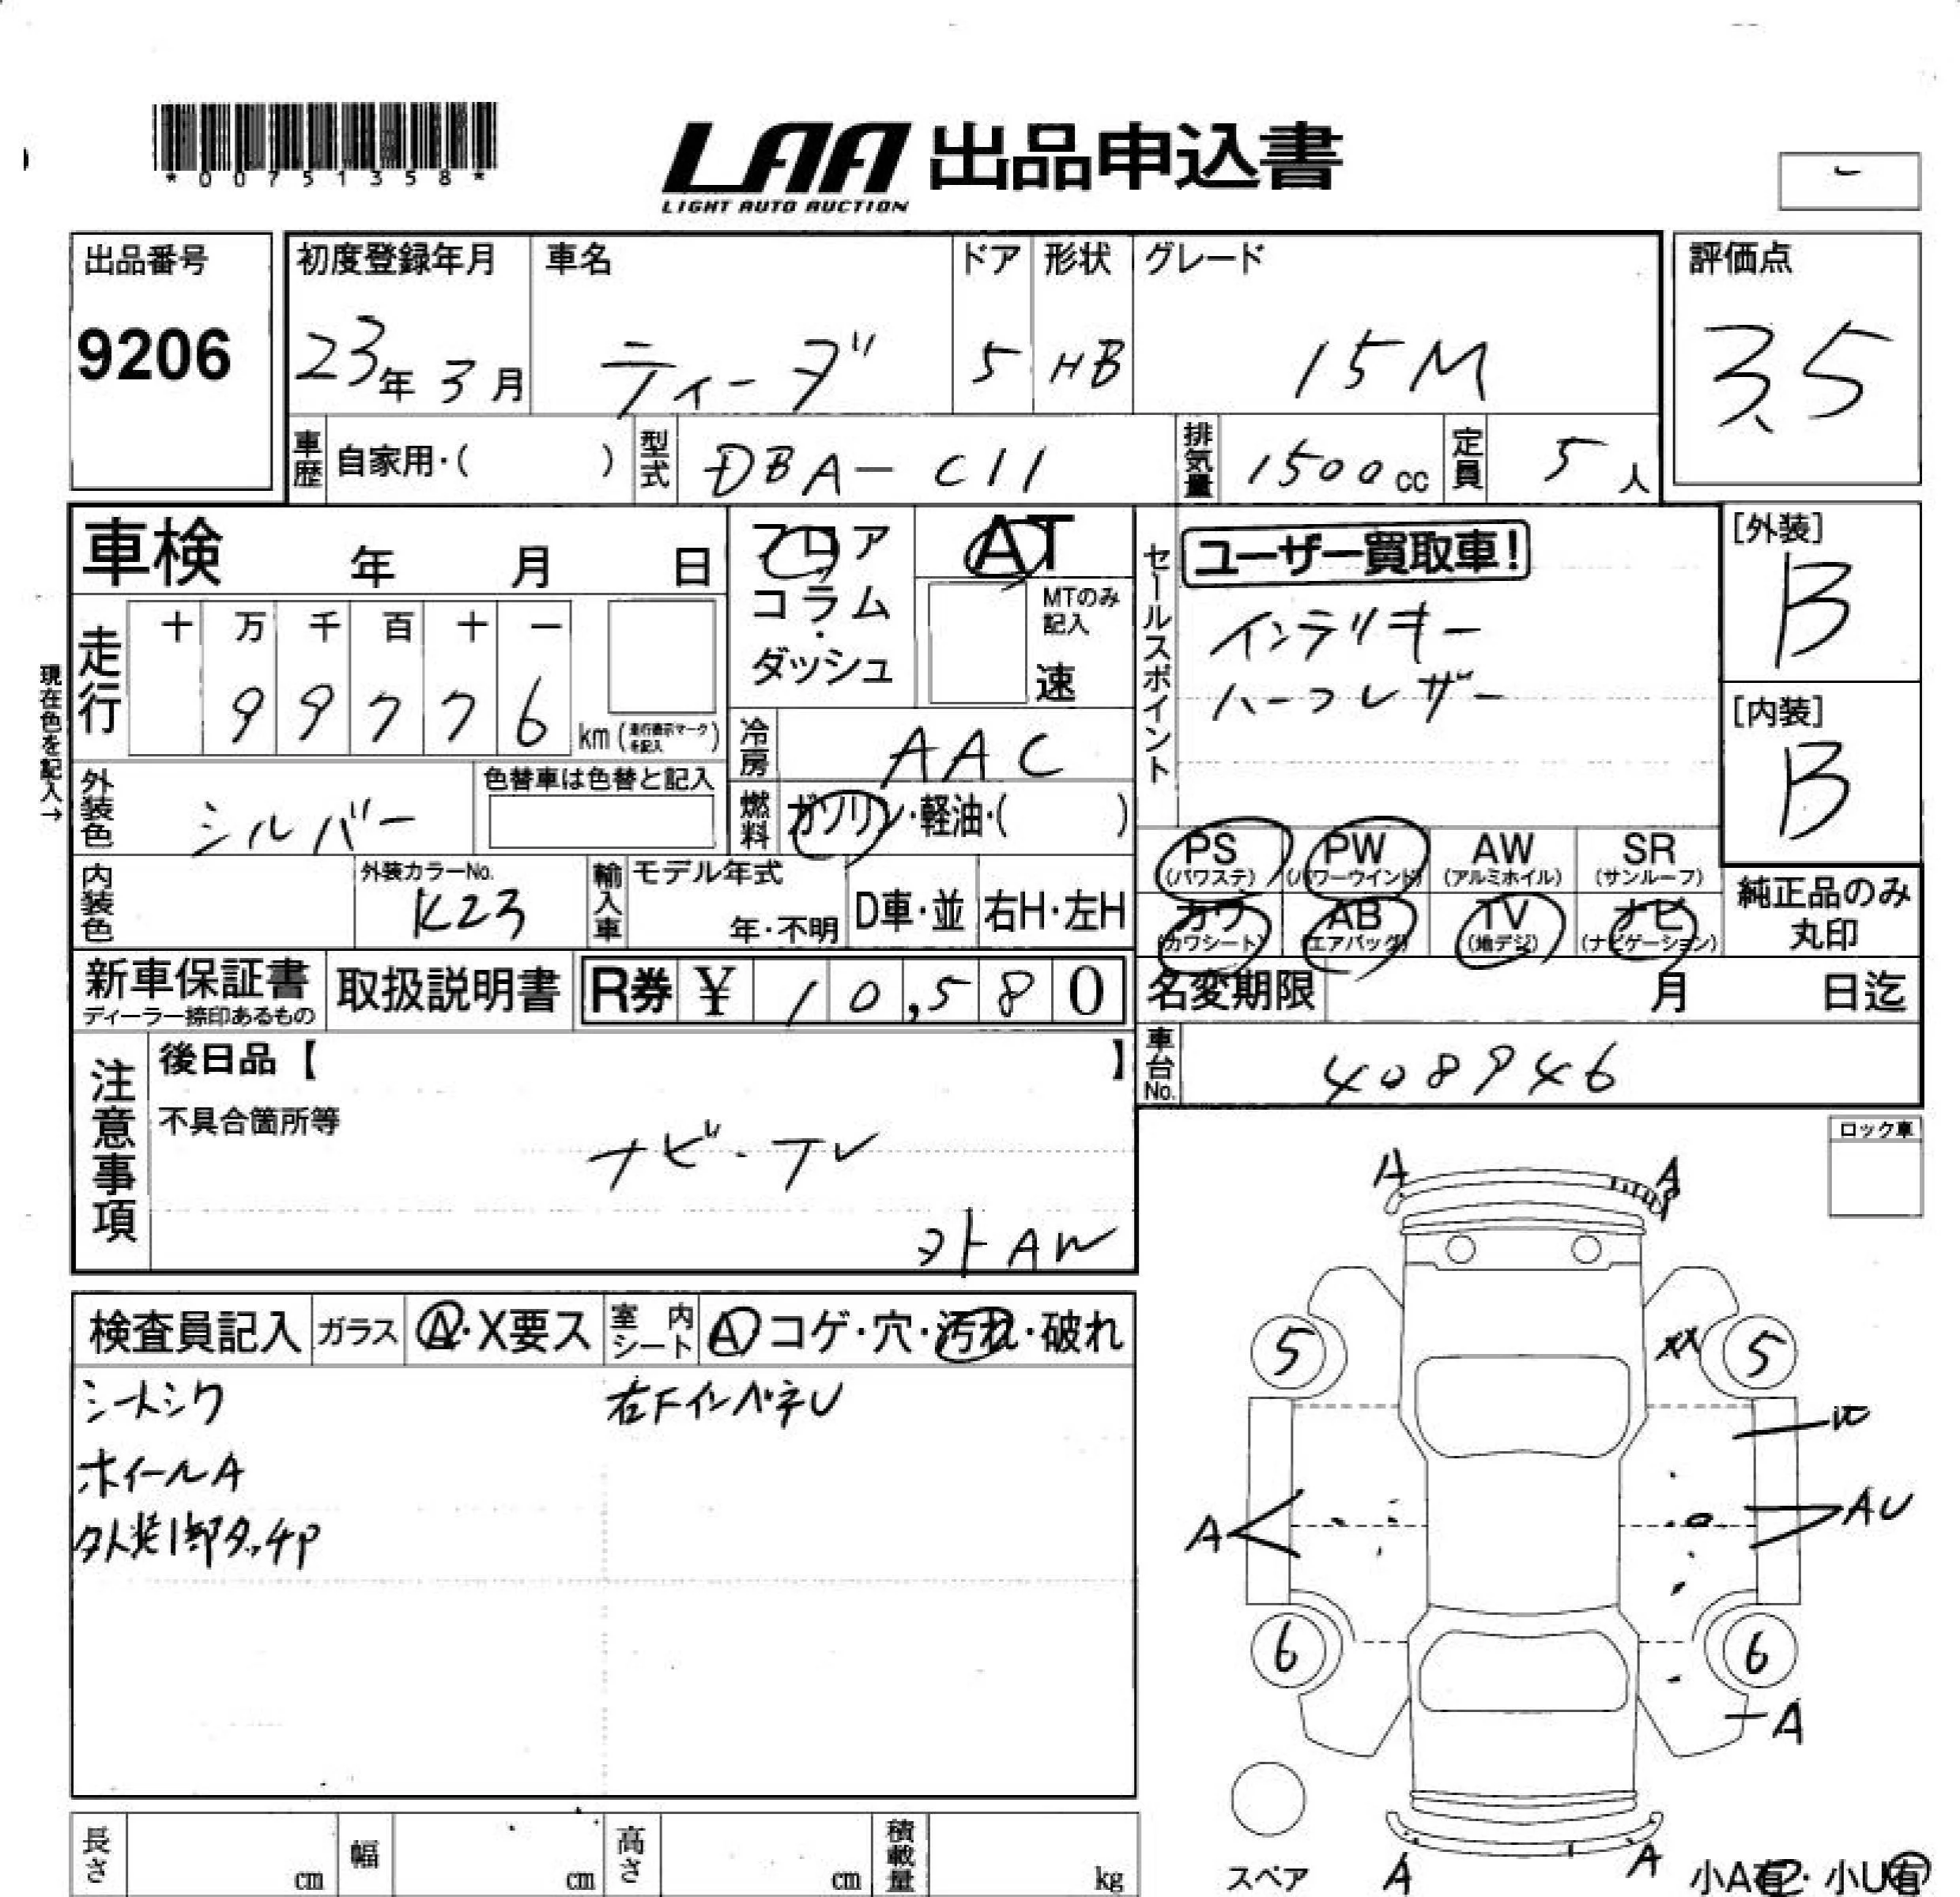 *00751358*
LAA 出品申込書
LIGHT AUTO AUCTION
出品番号
9206
初度登録年月
23年 3月
車名
ティーダ
ドア
5
形状
HB
グレード
15M
評価点
3.5
車歴 自家用・( )
型式 DBA-C11
排気量 1500cc
定員 5人
車検 年 月 日
フロア
コラム
・
ダッシュ
AT
MTのみ
記入
速
セールスポイント
ユーザー買取車!
インテリキー
ハーフレザー
[外装]
B
[内装]
B
現在色を記入→
走行
十 万 千 百 十 一
9 9 7 7 6 km(走行表示マークを記入)
冷房 AAC
燃料 ガソリン・軽油・( )
外装色 シルバー
色替車は色替と記入
内装色
外装カラーNo.
K23
輸入車
モデル年式
年・不明
D車・並
右H・左H
PS
(パワステ)
PW
(パワーウインド)
AW
(アルミホイル)
SR
(サンルーフ)
カワ
(カワシート)
AB
(エアバッグ)
TV
(地デジ)
ナビ
(ナビゲーション)
純正品のみ
丸印
新車保証書
ディーラー捺印あるもの
取扱説明書
R券 ¥ 10,580
名変期限 月 日迄
車台No. 408946
注意事項
後日品【 】
不具合箇所等
ナビ・TV
外AW
ロック車
検査員記入
ガラス
A・X要ス
室内シート
A コゲ・穴・汚れ・破れ
シートシワ
右FインパネU
ホイールA
外装1部タッチP
A
A
5
XX
5
U
A
AU
6
6
A
スペア
A
A
小A有・小U有
長さ cm
幅 cm
高さ cm
積載量 kg